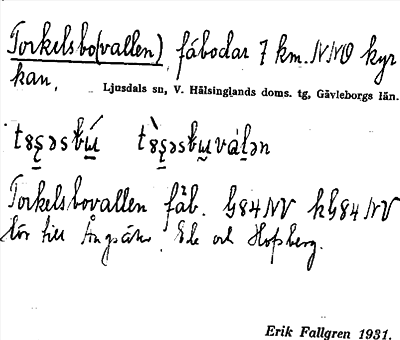 Torkelsbo(vallen) fäbodar 7 km. NNO kyr
kan.
Ljusdals sn, V. Hälsinglands doms. tg, Gävleborgs län.
Torkelsbovallen fäb. G84NV kG84NV
hör till Ängsåker, Ede och Hofsberg.
Erik Fallgren 1931.